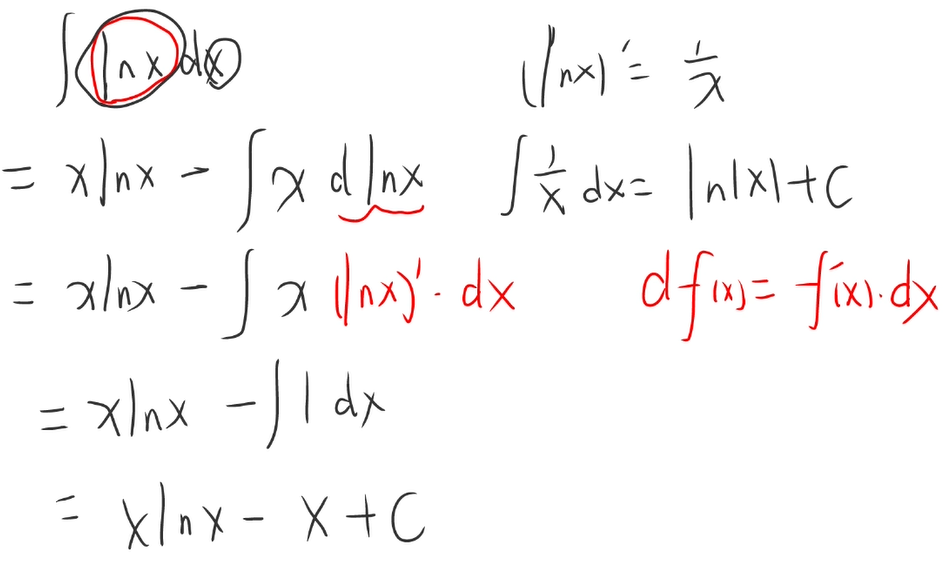 ∫ ln x dx
(ln x)' = 1/x
= x ln x - ∫ x d ln x
∫ 1/x dx = ln|x| + C
= x ln x - ∫ x (ln x)' · dx
d f(x) = f'(x) · dx
= x ln x - ∫ 1 dx
= x ln x - x + C